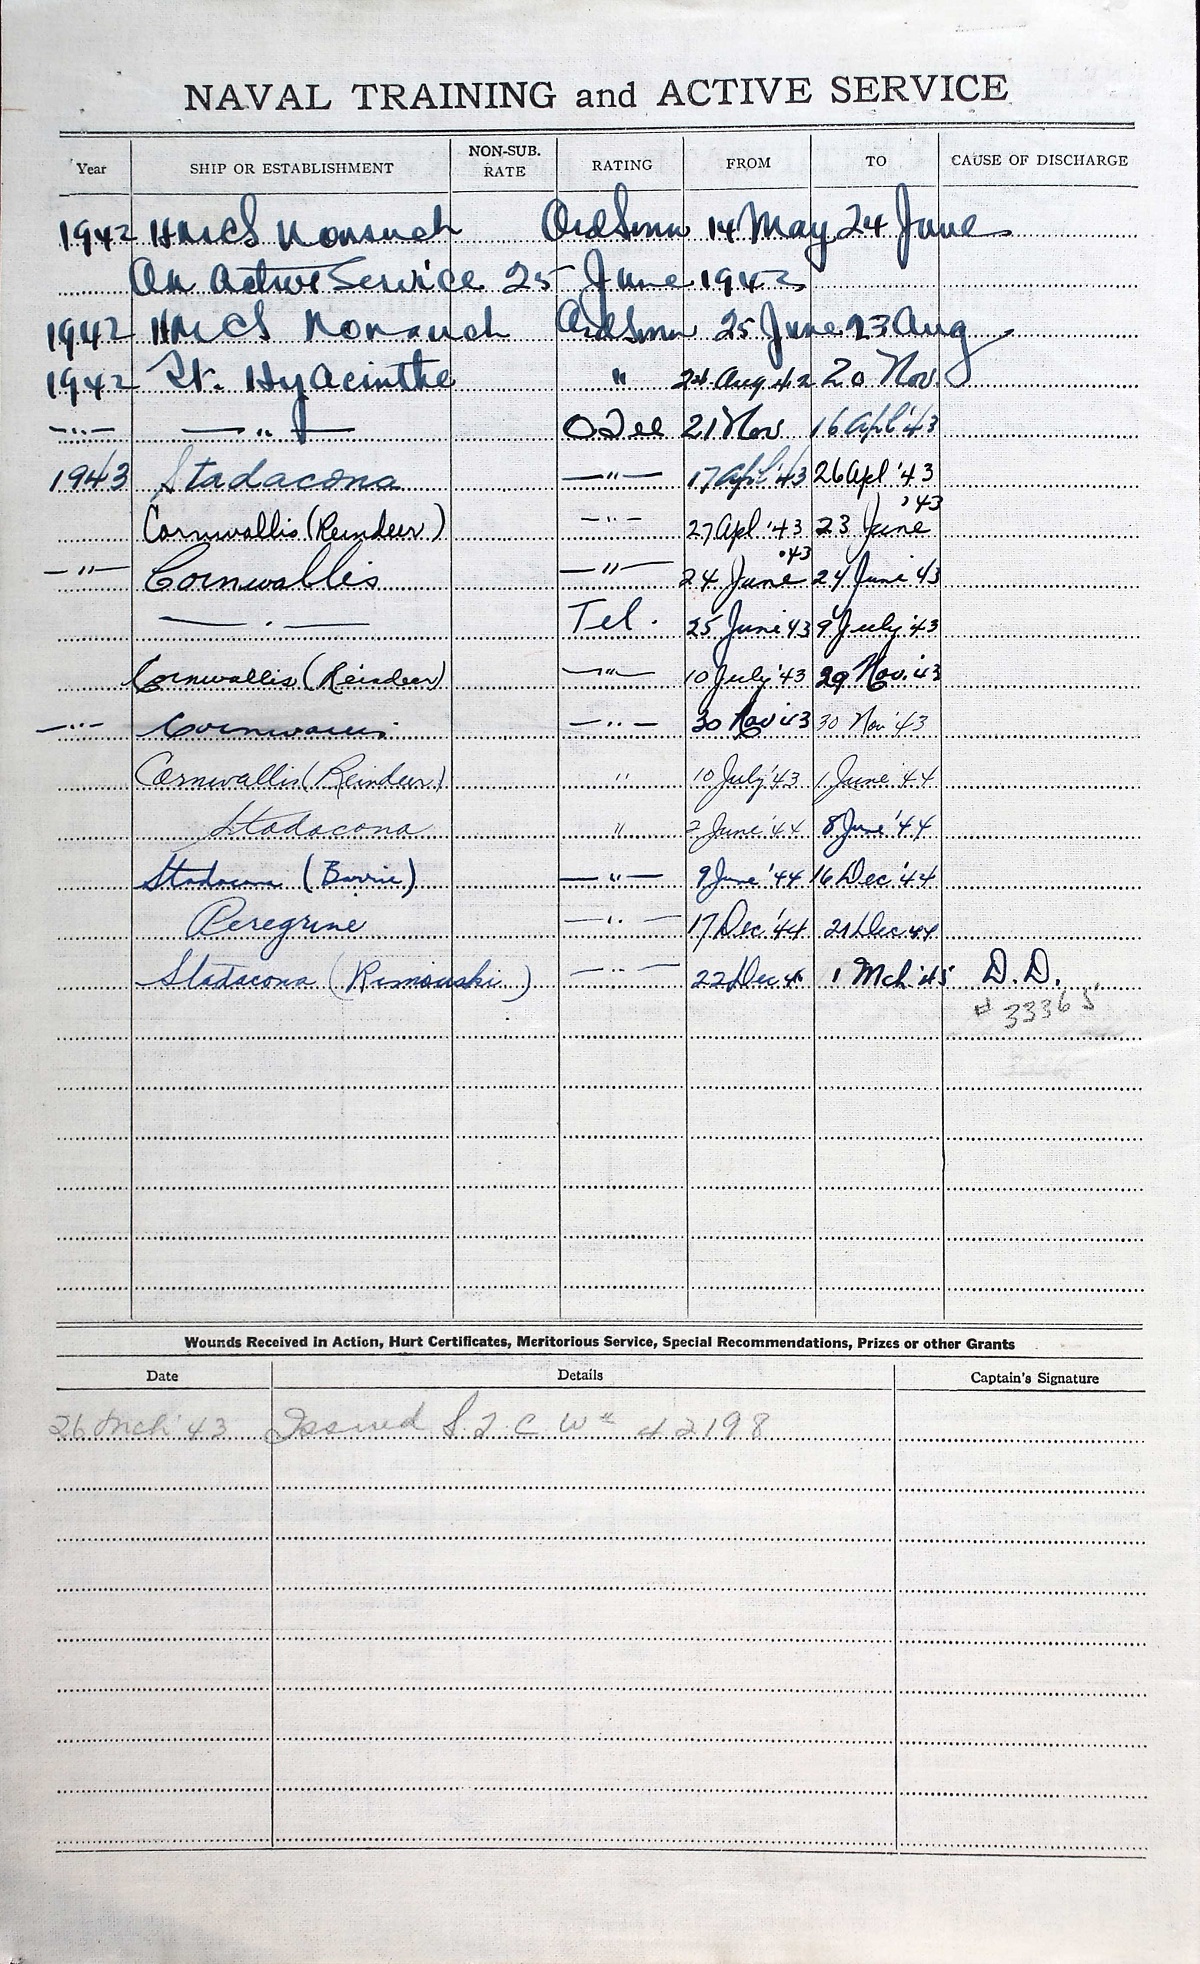 NAVAL TRAINING and ACTIVE SERVICE
Year SHIP OR ESTABLISHMENT NON-SUB. RATE RATING FROM TO CAUSE OF DISCHARGE
1942 HMCS Nonsuch OrdSmn 14 May 24 June
On Active Service 25 June 1942
1942 HMCS Nonsuch OrdSmn 25 June 23 Aug
1942 St. Hyacinthe " 24 Aug 42 20 Nov
—"— —"— OTel 21 Nov 16 Apl '43
1943 Stadacona —"— 17 Apl '43 26 Apl '43
Cornwallis (Reindeer) —"— 27 Apl '43 23 June '43
—"— Cornwallis —"— 24 June '43 24 June 43
— . — Tel. 25 June 43 9 July '43
Cornwallis (Reindeer) —"— 10 July '43 29 Nov. '43
—"— Cornwallis —"— 30 Nov '43 30 Nov '43
Cornwallis (Reindeer) " 10 July '43 1 June '44
Stadacona " 2 June '44 8 June '44
Stadacona (Barrie) —"— 9 June '44 16 Dec '44
Peregrine —"— 17 Dec '44 21 Dec 44
Stadacona (Rimouski) —"— 22 Dec 4 1 Mch '45 D.D.
# 33365
Wounds Received in Action, Hurt Certificates, Meritorious Service, Special Recommendations, Prizes or other Grants
Date Details Captain's Signature
26 Mch '43 Issued 42198